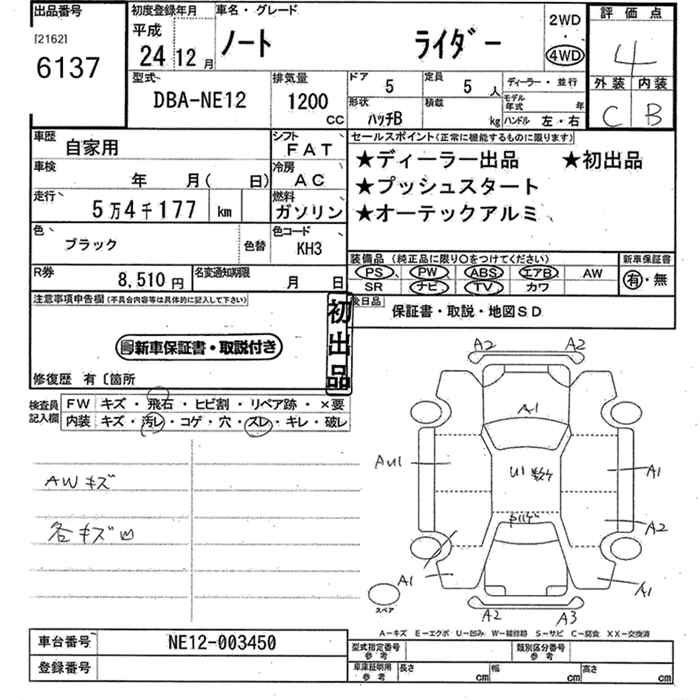 出品番号 初度登録年月 車名・グレード 2WD 評価点
[2162] 平成
6137 24 12月 ノート ライダー 4WD 4
型式 排気量 ドア 5 定員 5人 ディーラー・並行 外装 内装
DBA-NE12 1200 cc 形状 ハッチB 積載 kg モデル年式 年 C B
ハンドル 左・右
車歴 自家用 シフト FAT セールスポイント(正常に機能するものに限ります)
車検 年 月( 日) 冷房 AC ★ディーラー出品 ★初出品
★プッシュスタート
走行 5万4千177 km 燃料 ガソリン ★オーテックアルミ
色 ブラック 色替 色コード KH3 装備品(純正品に限り○をつけてください) 新車保証書
R券 8,510円 名変通知期限 月 日 PS PW ABS エアB AW 有・無
SR ナビ TV カワ
注意事項申告欄(不具合内容等は具体的に記入して下さい) 初出品 後日品 保証書・取説・地図SD
新車保証書・取説付き
修復歴 有〔箇所
検査員記入欄 FW キズ・飛石・ヒビ割・リペア跡・×要
内装 キズ・汚レ・コゲ・穴・スレ・キレ・破レ
A2 A2
A1
AU1 U1 A1
AWキズ
A2
各キズ凹
A1 A1
スペア
A2 A3
A-キズ E-エクボ U-凹み W-補修跡 S-サビ C-腐食 XX-交換済
車台番号 NE12-003450 型式指定番号 参考 類別区分番号 参考
登録番号 車庫証明用 参考 長さ cm 幅 cm 高さ cm